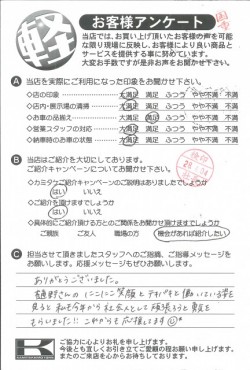 軽
お客様アンケート
当店では、お買い上げ頂いたお客様の声を可能
な限り現場に反映し、お客様により良い商品と
サービスを提供する事に努めています。
大変お手数ですが是非お声をお聞かせ下さい。
A 当店を実際にご利用になった印象をお聞かせ下さい。
◇店の印象 大満足 満足 ふつう やや不満 不満
◇店内・展示場の清掃 大満足 満足 ふつう やや不満 不満
◇お車の品揃え 大満足 満足 ふつう やや不満 不満
◇営業スタッフの対応 大満足 満足 ふつう やや不満 不満
◇納車時のお車の状態 大満足 満足 ふつう やや不満 不満
B 当店はご紹介を大切にしております。
ご紹介キャンペーンについてお聞かせ下さい。
◇カミタケご紹介キャンペーンのご説明はありましたでしょうか
はい いいえ
◇ご紹介を頂けますでしょうか
はい いいえ
◇具体的にご紹介頂ける方とのご関係をお聞かせ頂けますでしょうか
ご親族 ご友人 職場の方 機会があれば紹介したい
C 担当させて頂きましたスタッフへのご指摘、ご指導メッセージを
お願いします。応援メッセージもぜひお願いします。
ありがとうございました。
さんの にこにこ笑顔と テキパキと働いている姿を
見ると 私も今年から社会人として頑張ろうと勇気を
もらいました!! これからも応援してます
K
ご協力に心よりお礼を申し上げます。
今後とも宜しくお引き立てご愛顧の程お願い申し上げます。
またのご来店を心からお待ちしております。